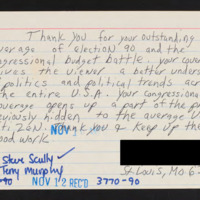 Thank you for your outstanding
verage of election 90 and the
ngressional budget battle. Your cover
gives the viewer a better unders
politics and political trends acr
the entire U.S.A. Your congressional
verage opens up a part of the pr
viously hidden to the average U
citizen. Thank you & keep up the
ood work
NOV 1
Steve Scully
Terry Murphy
-90 NOV 12 REC'D 3770-90
St. Louis, MO. 6